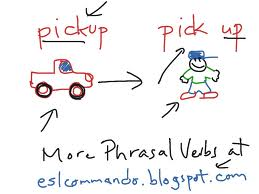 pickup pick up
More Phrasal Verbs at
eslcommando.blogspot.com